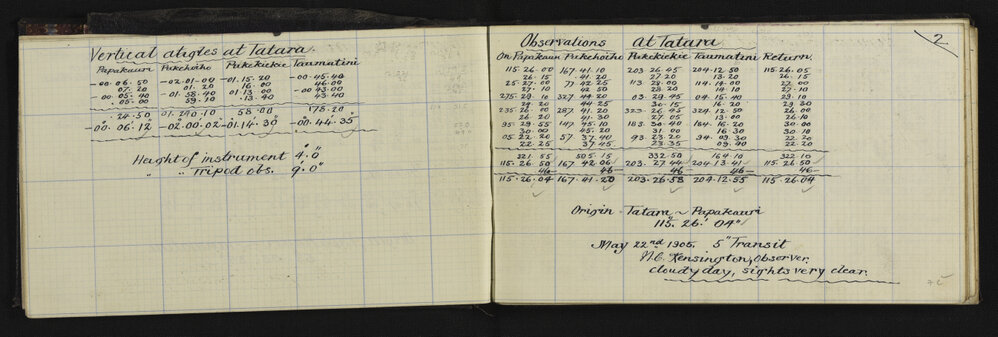 Vertical angles at Tatara.
Papakauri Pukehoiho Pukekiekie Taumatini
-00.06.50 -02.01.00 -01.15.20 -00.45.40
07.20 01.20 16.00 46.00
-00.05.40 01.58.40 01.13.00 -00.43.00
.05.00 59.10 .13.40 43.40
24.50 01.290.10 58.00 178.20
-00.06.12 -02.00.02 -01.14.30 -00.44.35
Height of instrument 4'.0"
" " Tripod obs. 9'.0"
2
Observations at Tatara
On Papakauri Pukehoiho Pukekiekie Taumatini Return
115.26.00 167.41.10 203.26.45 204.12.50 115.26.05
26.15 .41.20 27.20 13.20 26.15
25.27.00 77.42.25 113.28.00 114.14.00 27.00
27.10 42.50 28.20 14.10 27.10
275.29.10 327.44.20 03.29.45 04.15.40 29.10
29.20 44.25 30.15 16.20 29.30
235.26.00 287.41.20 323.26.45 324.12.50 26.00
26.20 .41.30 27.05 13.00 26.10
95.29.55 147.45.10 183.30.40 184.16.20 30.00
30.00 45.20 31.00 16.30 30.10
05.22.20 57.37.40 93.23.20 94.09.30 22.20
22.25 37.45 23.35 09.40 22.20
321.55 505.15 332.50 164.10 322.10
115.26.50 167.42.06 203.27.44 204.13.41 115.26.50
46- 46- 46- 46- 46-
115.26.04 167.41.20 203.26.58 204.12.55 115.26.04
Origin - Tatara ~ Papakauri
115°.26'.04"
May 22nd 1905. 5" Transit
W.C. Kensington, Observer.
cloudy day, sights very clear.